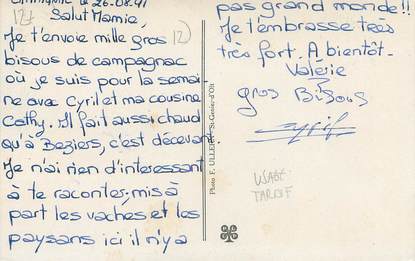 le 26.08.91
Salut Mamie,
Je t'envoie mille gros
bisous de campagnac
où je suis pour la semai-
ne avec Cyril et ma cousine
Cathy. Il fait aussi chaud
qu'à Beziers, c'est décevant.
Je n'ai rien d'interessant
à te raconter, mis à
part les vaches et les
paysans ici il n'y a
pas grand monde!!
Je t'embrasse très
très fort. A bientôt-
Valérie
gros Bisous
Cyril
Photo F. ULLERN St-Genie-d'Olt